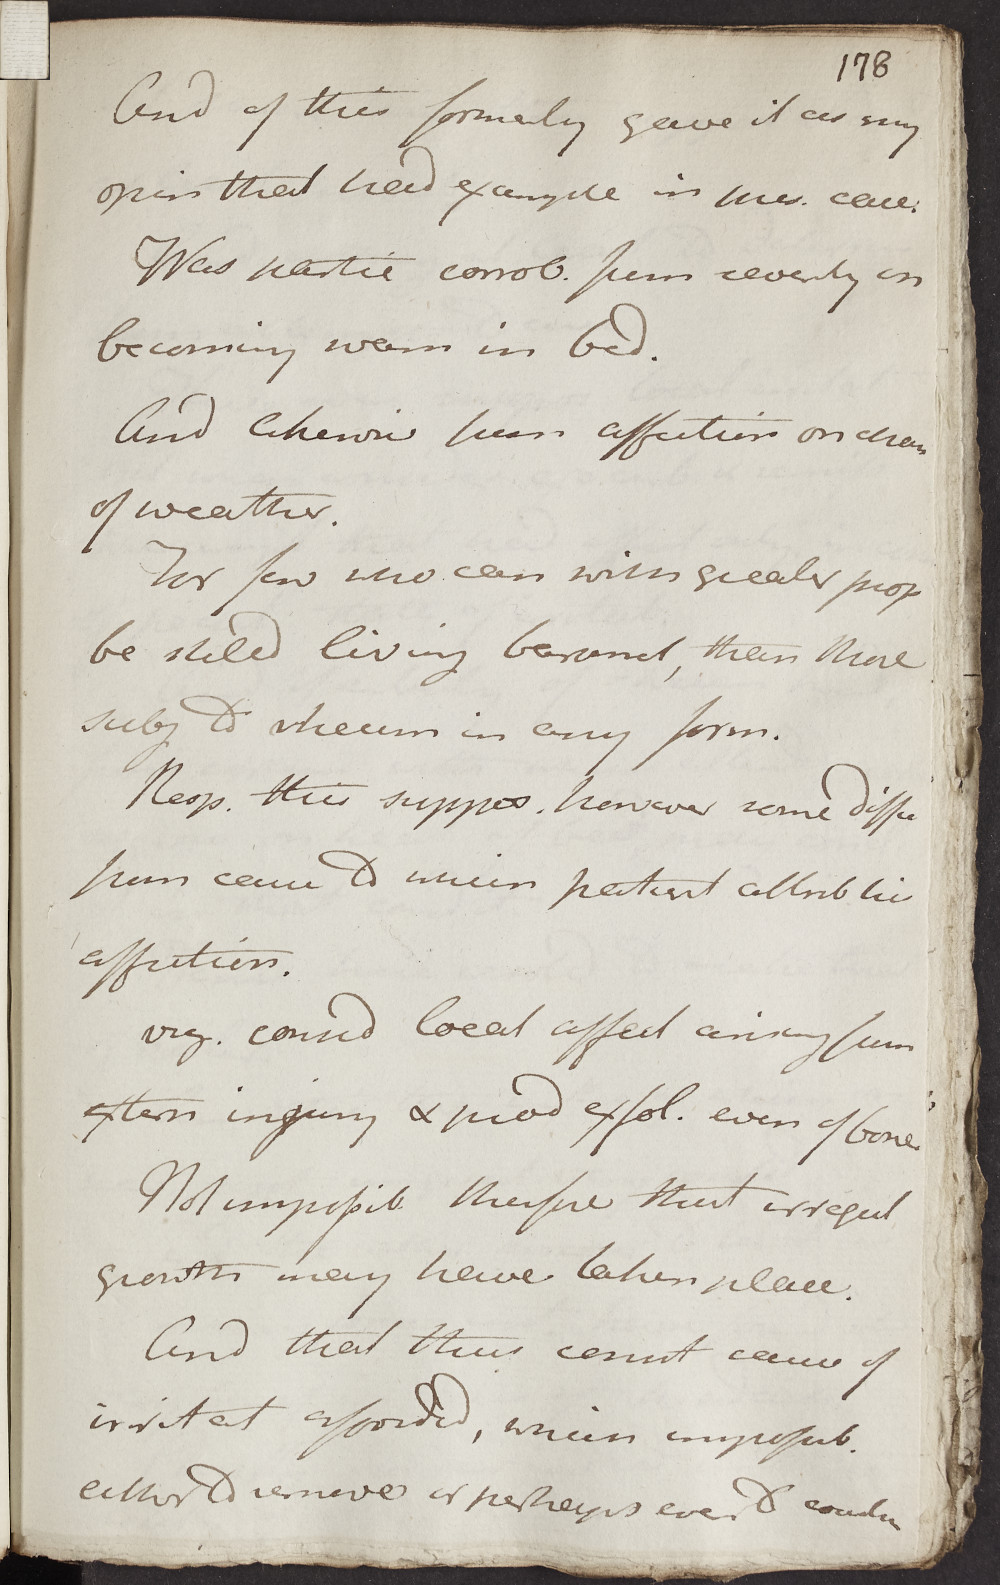 178
And of this formerly gave it as my
opin that had example in pres. case.
Was partic corrob. from severity on
becoming warm in bed.
And likewise from affection on chan
of weather.
For few who can with greater prop
be stiled living baromet, than those
subj to rheum in any form.
Resp. this suppos. however some diffe
from cause to which patient attrib his
affection.
viz. consid local affect arising from
extern injury & prod exfol. even of bone
Not impossib. therefore that irregul
growth may have taken place.
And that thus const cause of
irritat afforded, which impossib.
either to remove or perhaps even to